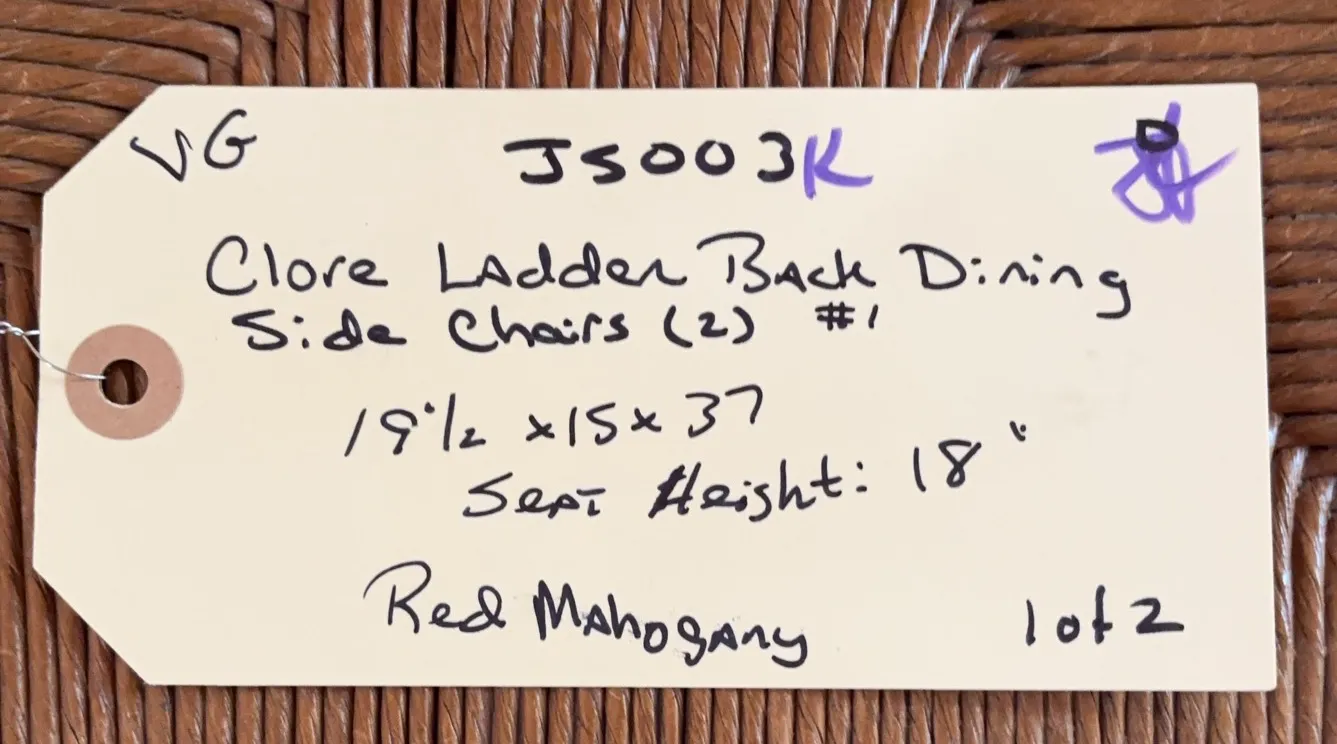 VG JS003K
Clore Ladder Back Dining
Side Chairs (2) #1
19 1/2 x 15 x 37
Seat Height: 18"
Red Mahogany 1 of 2